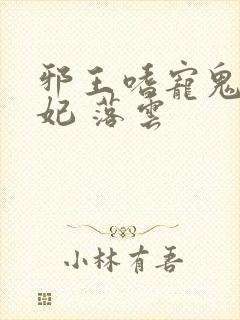 邪王嗜寵鬼
妃 落雲
小林有吾